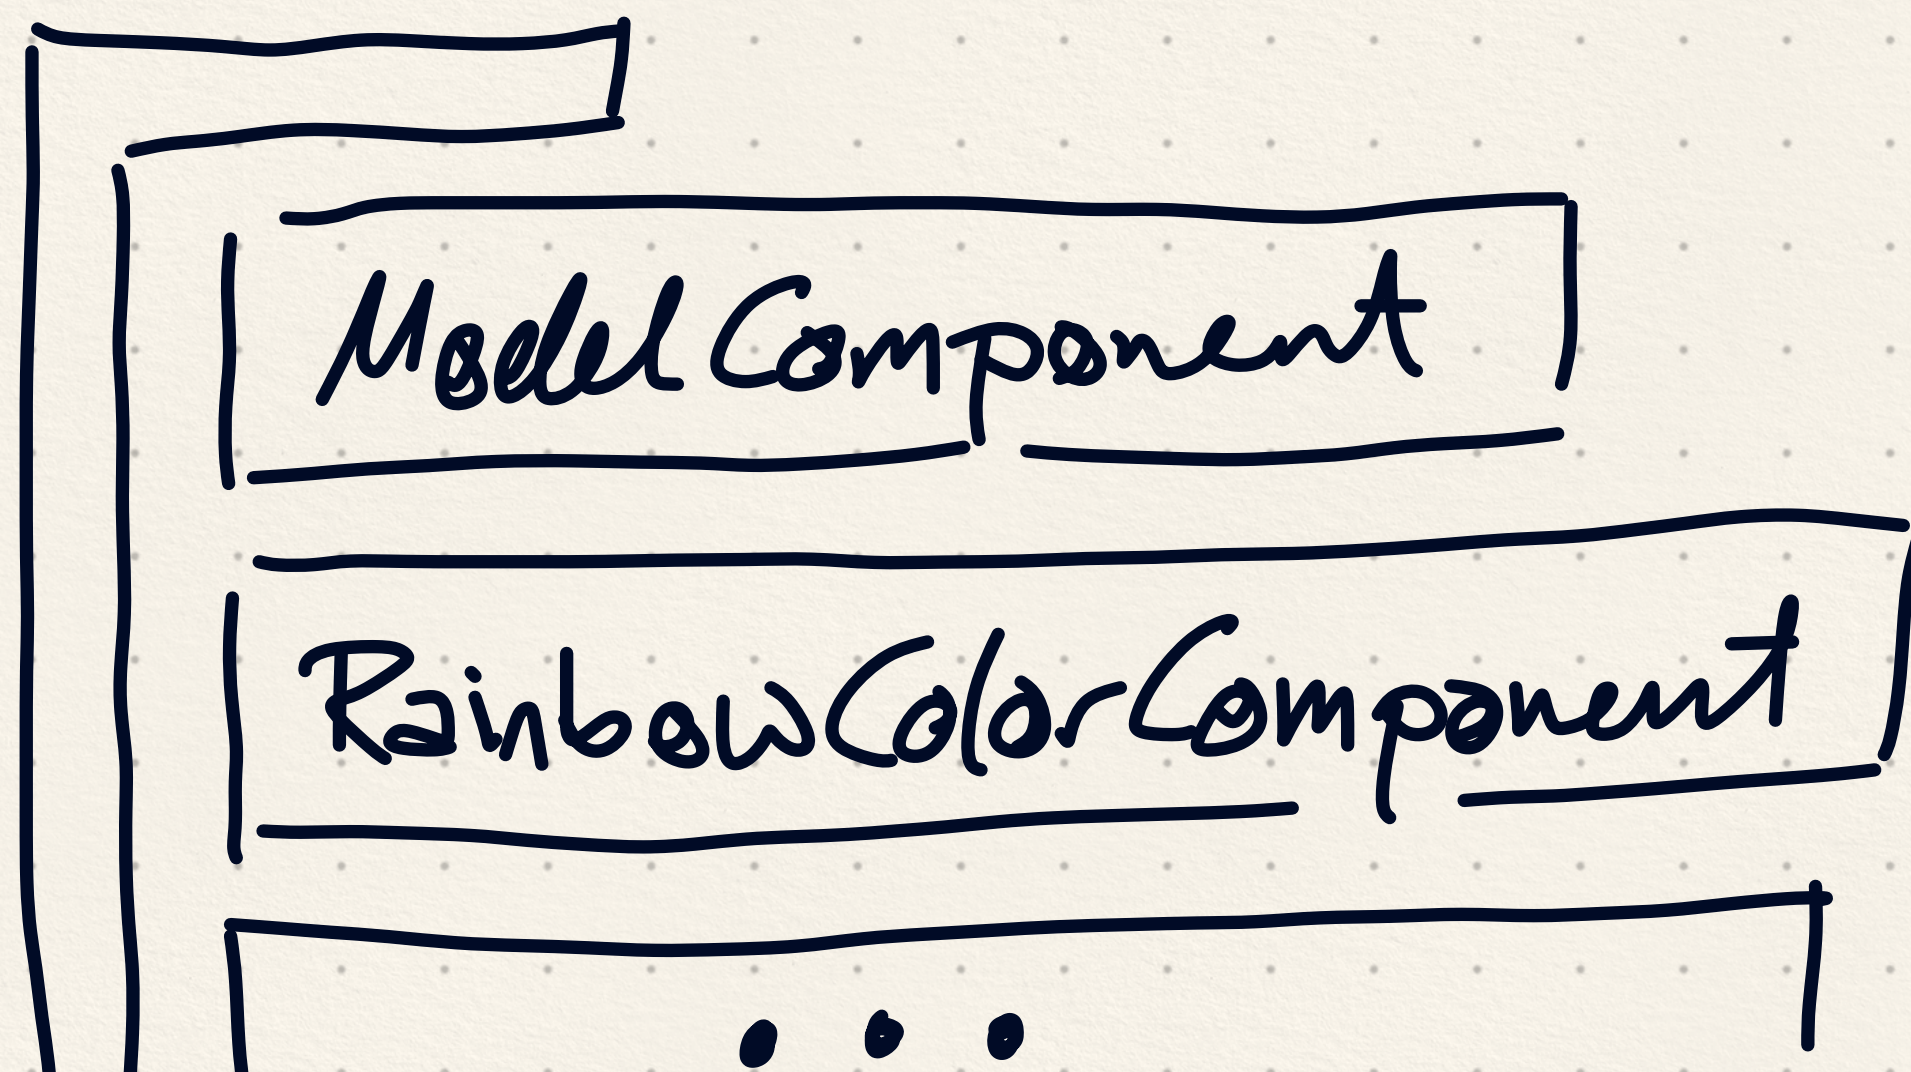 ModelComponent
RainbowColorComponent
...